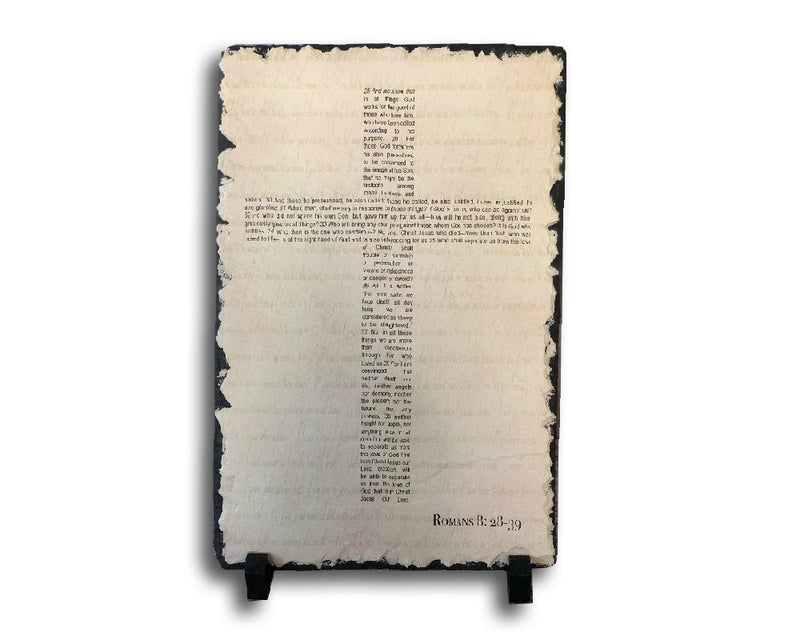 28 And we know that
in all things God
works for the good of
those who love him,
who have been called
according to his
purpose. 29 For
those God foreknew
he also predestined
to be conformed to
the image of his Son,
that he might be the
firstborn among
many brothers and
sisters. 30 And those he predestined, he also called; those he called, he also justified; those he justified, he
also glorified. 31 What, then, shall we say in response to these things? If God is for us, who can be against us?
32 He who did not spare his own Son, but gave him up for us all—how will he not also, along with him
graciously give us all things? 33 Who will bring any charge against those whom God has chosen? It is God who
justifies. 34 Who then is the one who condemns? No one. Christ Jesus who died—more than that, who was
raised to life— is at the right hand of God and is also interceding for us. 35 Who shall separate us from the love
of Christ? Shall
trouble or hardship
or persecution or
famine or nakedness
or danger or sword?
36 As it is written
"For your sake we
face death all day
long we are
considered as sheep
to be slaughtered."
37 No, in all these
things we are more
than conquerors
through him who
loved us. 38 For I am
convinced that
neither death nor
life, neither angels
nor demons, neither
the present nor the
future, nor any
powers, 39 neither
height nor depth, nor
anything else in all
creation will be able
to separate us from
the love of God that
is in Christ Jesus our
Lord. creation, will
be able to separate
us from the love of
God that our Christ
Jesus our Lord.
Romans 8: 28-39